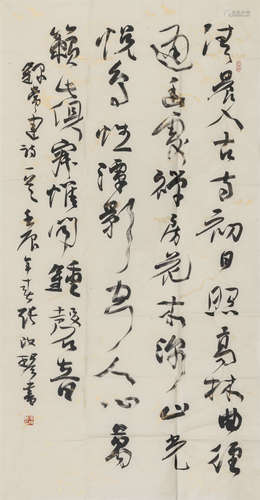 清晨入古寺初日照高林曲徑
通幽處禪房花木深山光
悦鳥性潭影空人心萬
籟此俱寂惟聞鐘磬音
録常建詩一首壬辰年春張改琴書